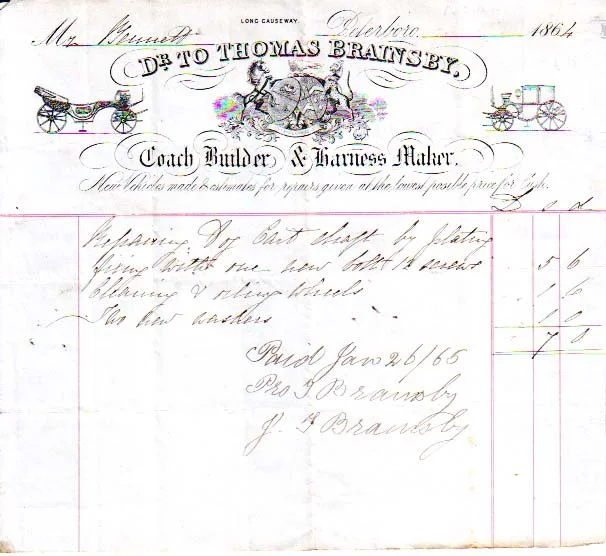 LONG CAUSEWAY.
Mr Bennett Peterboro. 1864
DR TO THOMAS BRAINSBY,
Coach Builder & Harness Maker.
New Vehicles made & estimates for repairs given at the lowest posible price for Cash.
£ s d
Repairing Dog Cart shaft by plating
fixing with one new bolt 12 screws 5 6
Cleaning & oiling wheels 1 6
Two new washers 1 0
7 0
Paid Jan 26/65
Pro T Brainsby
J. T Brainsby